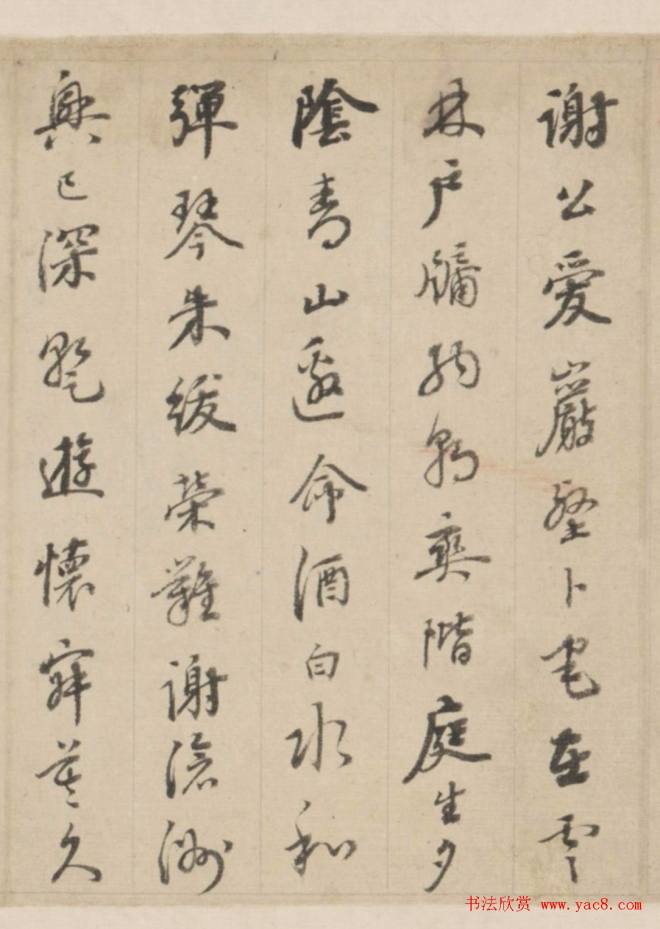 謝公愛巖壑卜宅在雲
林戶牖納朝爽階庭生夕
陰青山邀命酒白水和
彈琴朱紱榮難謝滄洲
興已深遊懷久
书法欣赏 www.yac8.com